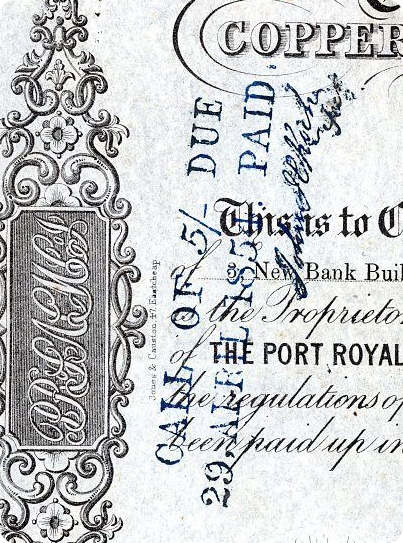 COPPER
This is to C
of 3, New Bank Buil
is the Proprietor
of THE PORT ROYAL
the regulations of
been paid up in
CALL OF 5/- DUE
29 APRIL 1854 PAID.
Jones & Causton, 47 Eastcheap